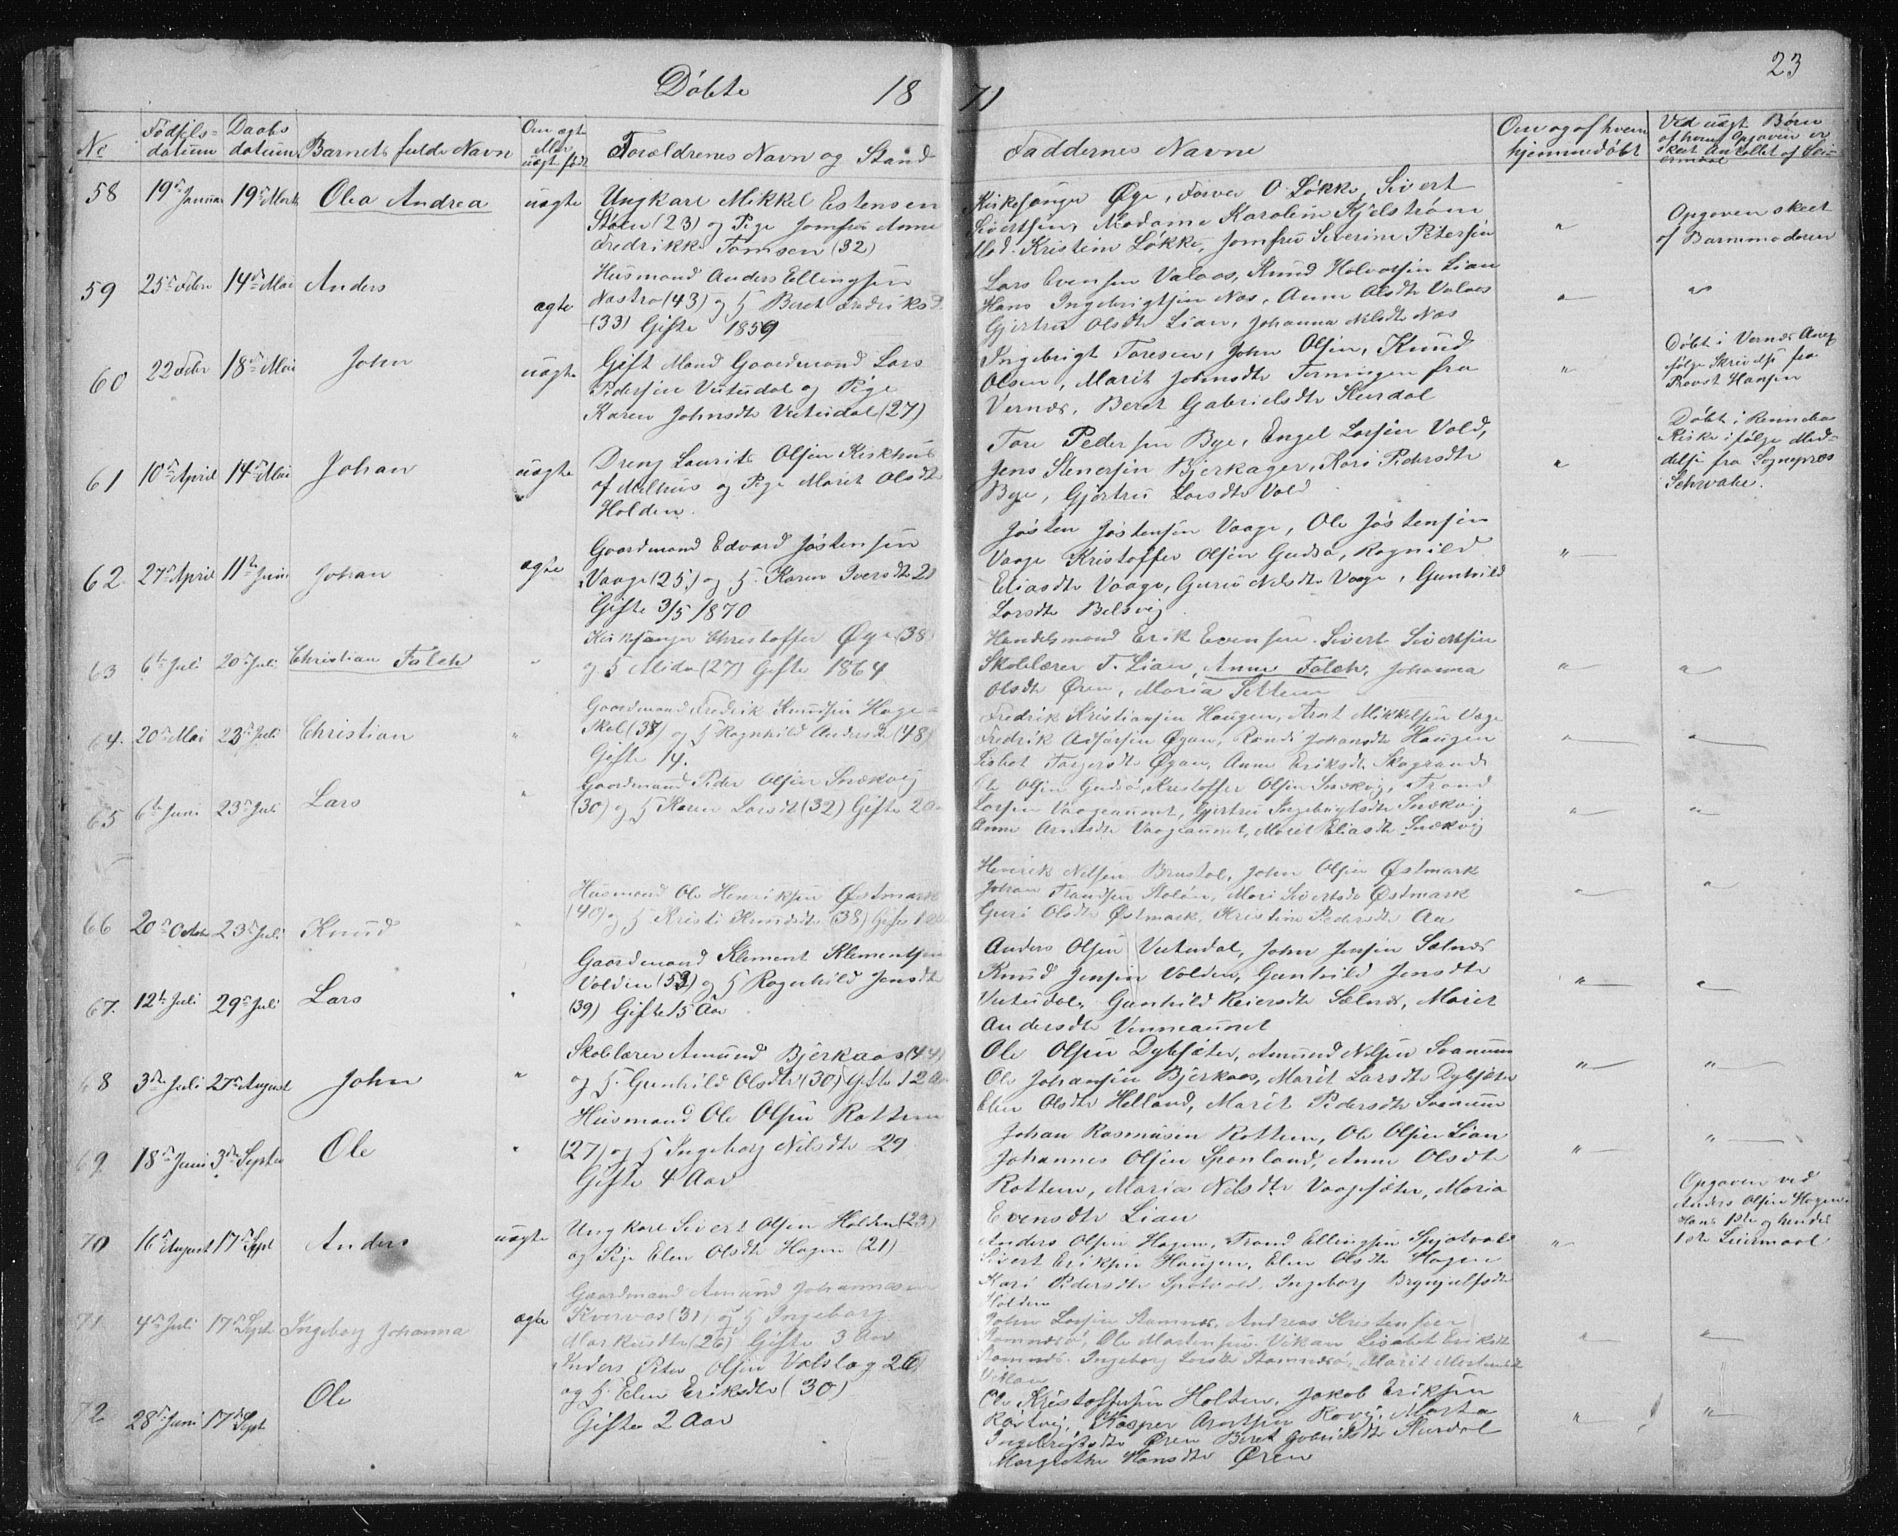 23
Døbte 1871
No Fødsels-datum Daabs datum Barnets fulde Navn Om ægte eller uægt. født Forældrenes Navn og Stand Faddernes Navne Om og af hvem hjemmedøbt Ved uægt. Børn af hvem Opgaven er skeet Antallet af Leiermaal
58 19de Januar 19de Marts Olea Andrea uægte Ungkarl Mikkel Estensen
Støen (23) og Pige Jomfru Anne
Fredrikke Tomsen (32)
Kirkesanger Øye, Farver O. Løkke, Sivert
Sivertsen, Madame Karoline Kjelstrøm
Mad. Kristine Løkke, Jomfru Severine Petersen
"
Opgaven skeet
af Barnemoderen
59 25de Febr 14de Mai Anders ægte Husmand Anders Ellingsen
Næstrø (43) og H Beret Fredriksd.
(33) Gifte 1859
Lars Evensen Valaas, Knud Halvorsen Lian
Hans Ingebrigtsen Næs, Anne Olsdtr Valaas
Gjertru Olsdtr Lian, Johanna Nilsdtr Næs
"
"
60 22 Febr 18de Mai John uægte Gift Mand Gaardmand Lars
Pedersen Vutudal og Pige
Karen Johnsdtr Vutudal (27)
Ingebrigt Toresen, John Olsen, Knud
Olsen, Marit Johnsdtr Terningen fra
Vernæs, Beret Gabrielsdtr Sturdal
"
Døbt i Vernæs Anex
følge Skrivelse fra
Provst Hansen
61 10de April 14de Mai Johan uægte Dreng Laurits Olsen Kirkhus
af Melhus og Pige Marit Olsdtr
Holden.
Tore Pedersen Bye, Engel Larsen Vold,
Jens Stenersen Bjerkager, Kari Pedersdtr
Bye, Gjertru Larsdtr Vold
"
Døbt i Rennebu
Kirke i følge Med-
delse fra Sognepræs
Schwabe.
62. 27de April 11te Juni Johan ægte Gaardmand Edvard Jøstensen
Vaage (25) og H. Karen Iversdtr 21
Gifte 3/5 1870
Jøsten Jøstensen Vaage, Ole Jøstensen
Vaage Kristoffer Olsen Gudsø, Ragnild
Eliasdtr Vaage, Guru Nilsdtr Vaage, Gunhild
Larsdtr Belsvig
"
63 6te Juli 20de Juli Christian Falch " Kirkesanger Christoffer Øye (38)
og H Alida (27) Gifte 1864
Handelsmand Erik Evensen. Sivert Sivertsen
Skolelærer T. Lian, Anne Falch, Johanna
Olsdtr Øren, Maria Settem
"
"
64. 20de Mai 23de Juli Christian " Gaardmand Fredrik Knudsen Hage-
skal (37) og H Ragnhild Andersdtr (48)
Gifte 14.
Fredrik Kristiansen Haugen, Arnt Mikkelsen Vage
Fredrik Asersen Øyan, Randi Johansdtr Haugen
Lisbet Torgersdtr Øyan, Anne Eriksdtr Skogrand
"
"
65 6te Juni 23de Juli Lars " Gaardmand Peder Olsen Snækvig
(30) og H Karen Larsdt (32) Gifte 2 Aar
Ole Olsen Gudsø, Kristoffer Olsen Snækvig, Trond
Larsen Vaageaunet, Gjertru Ingebrigtsdtr Snekvig
Anne Arntsdtr Vaageaunet, Marit Eliasdtr Snækvig
"
"
66 20de Octobr 23de Juli Knud " Husmand Ole Henriksen Østmark
(40) og H Kristi Knudsdtr (38) Gifte
Henrik Nilsen Brustøl, John Olsen Østmark
Johan Frandsen Stølen, Mari Sivertsdtr Østmark
Guri Olsdtr Østmark, Kristine Pedersdtr Aa
"
"
67. 12te Juli 29de Juli Lars " Gaardmand Klement Klementsen
Volden (53) og H Ragnhild Jensdtr
(39) Gifte 15 Aar
Anders Olsen Vutudal, John Jensen Sælnes
Knud Jensen Volden, Gunhild Jensdtr
Vutudal, Gunhild Reiersdtr Sælnes, Marit
Andersdtr Vinneaunet
"
"
68 3die Juli 27de August John " Skolelærer Amund Bjerkaas (44)
og H. Gunhild Olsdtr (30) Gifte 12 Aar
Ole Olsen Dybsæter, Amund Nilsen Svanum
Ole Johansen Bjerkaas, Marit Larsdtr Dybsæter
Elen Olsdtr Helland, Marit Pedersdtr Svanum
"
"
69 18de Juni 3die Septbr Ole " Husmand Ole Olsen Rottem
(27) og H Ingeborg Nilsdtr 29
Gifte 4 Aar
Johan Rasmusen Rottem, Ole Olsen Lian
Johannes Olsen Sponland, Anne Olsdtr
Rottem, Maria Nilsdtr Vaagesæter, Maria
Evensdtr Lian
"
"
70 16de August 17de Sept Anders uægte Ungkarl Sivert Olsen Holden (23)
og Pige Elen Olsdtr Hagen (21)
Anders Olsen Hagen, Trond Ellingsen Spjotvold
Sivert Eriksen Haugen, Elen Olsdtr Hagen
Kari Pedersdtr Spotvold, Ingeborg Brynjulfsdtr
Holden
"
Opgaven ved
Anders Olsen Hagen
Hans 1ste og hendes
1ste Leiermaal
71 4de Juli 17de Sept Ingeborg Johanna ægte Gaardmand Amund Johannesen
Kværvæs (31) og H Ingeborg
Markusdtr (26) Gifte 3 Aar
John Larsen Stamnes, Andreas Kristensen
Stamnesø, Ole Mortensen Vikan Lisabet Eriksdtr
Stamnes. Ingeborg Larsdtr Stamnesø, Marit Mortensdtr
Vikan
"
"
72 28de Juni 17de Sept Ole Anders Peter Olsen Valslag 26
og H. Elen Eriksdtr (30)
Gifte 2 Aar
Ole Kristoffersen Holten, Jakob Eriksen
Røstvig, Kasper Arntsen Rovig, Marta
Ingebrigtsdtr Øren Beret Gabrielsdtr Sturdal
Margrethe Hansdtr Øren
"
"